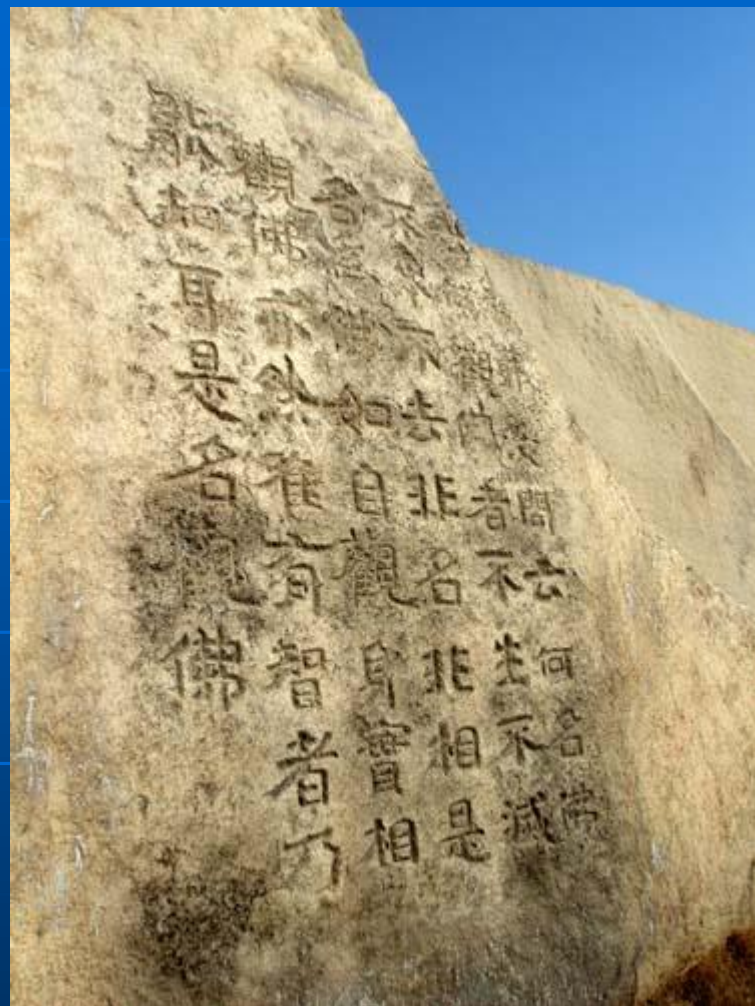 問云何名佛
觀佛者不生不滅
不來不去非名非相是
名為佛如自觀身實相
觀佛亦然唯有智者乃
能知耳是名觀佛